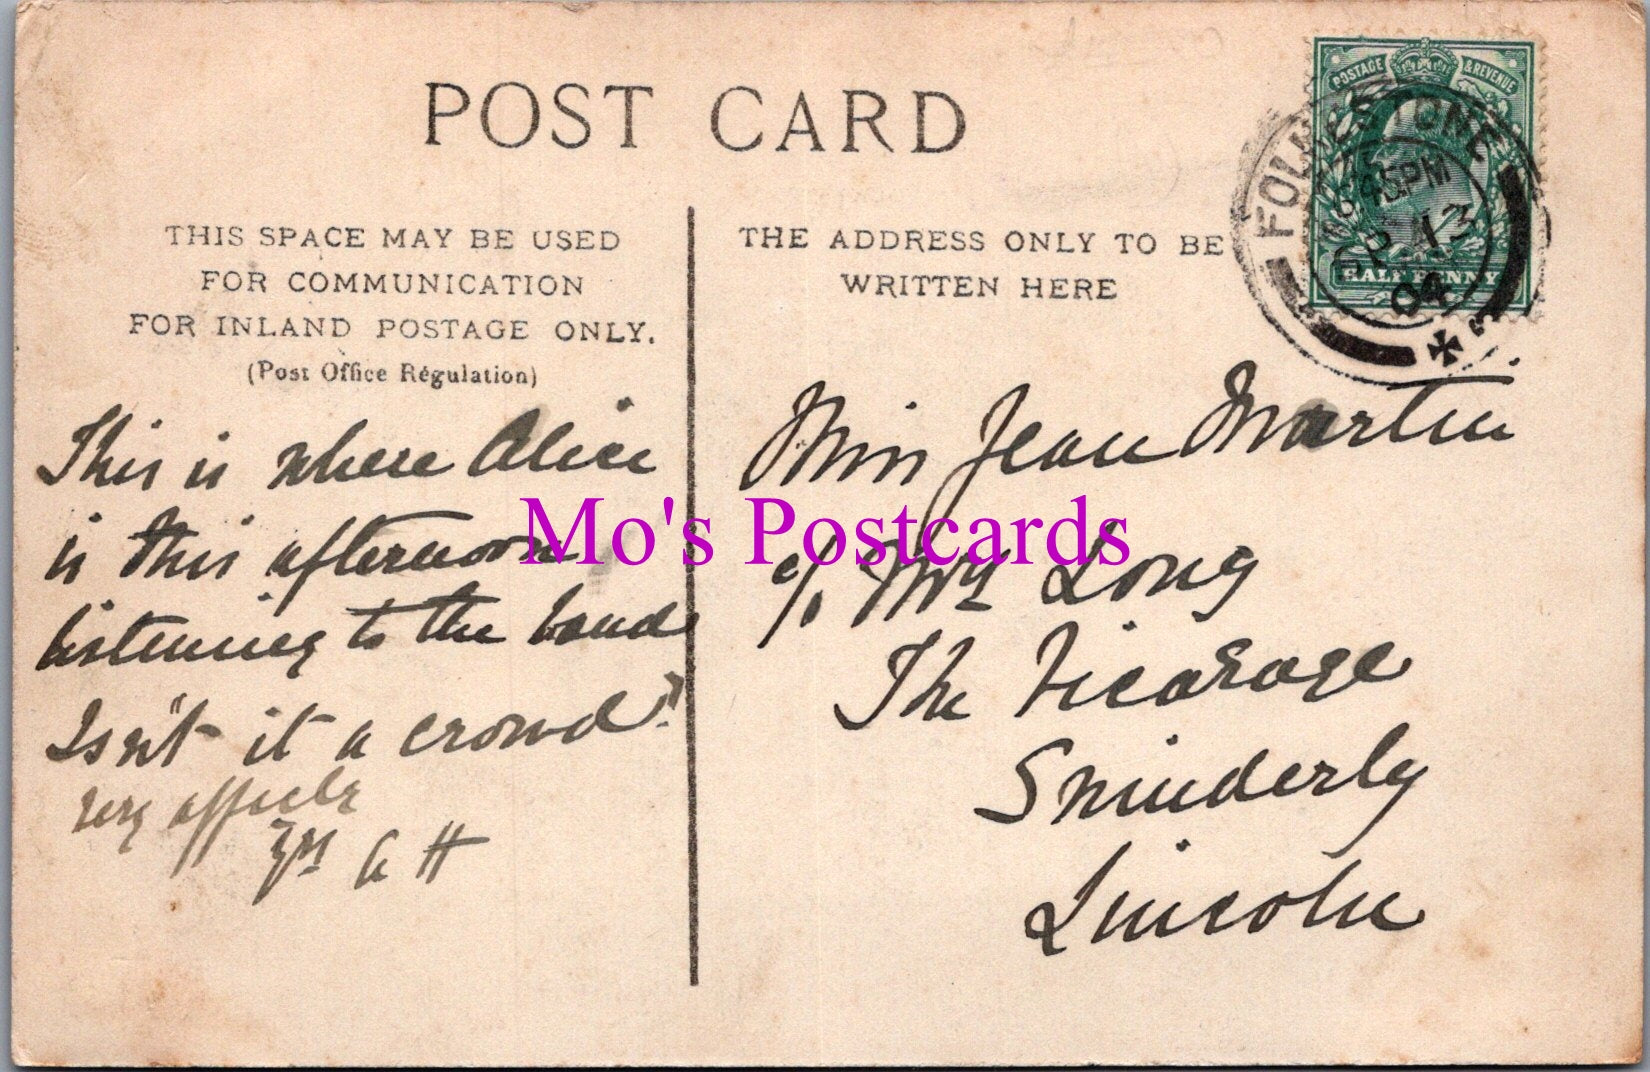 POST CARD
THIS SPACE MAY BE USED
FOR COMMUNICATION
FOR INLAND POSTAGE ONLY.
(Post Office Regulation)
This is where Alice
is this afternoon
listening to the band
Isn't it a crowd?
A H
THE ADDRESS ONLY TO BE
WRITTEN HERE
POSTAGE & REVENUE
HALF PENNY
FOLKESTONE
6.45PM
13
04
Miss Jean Martin
c/o Mrs Long
The Vicarage
Swinderly
Lincoln
Mo's Postcards